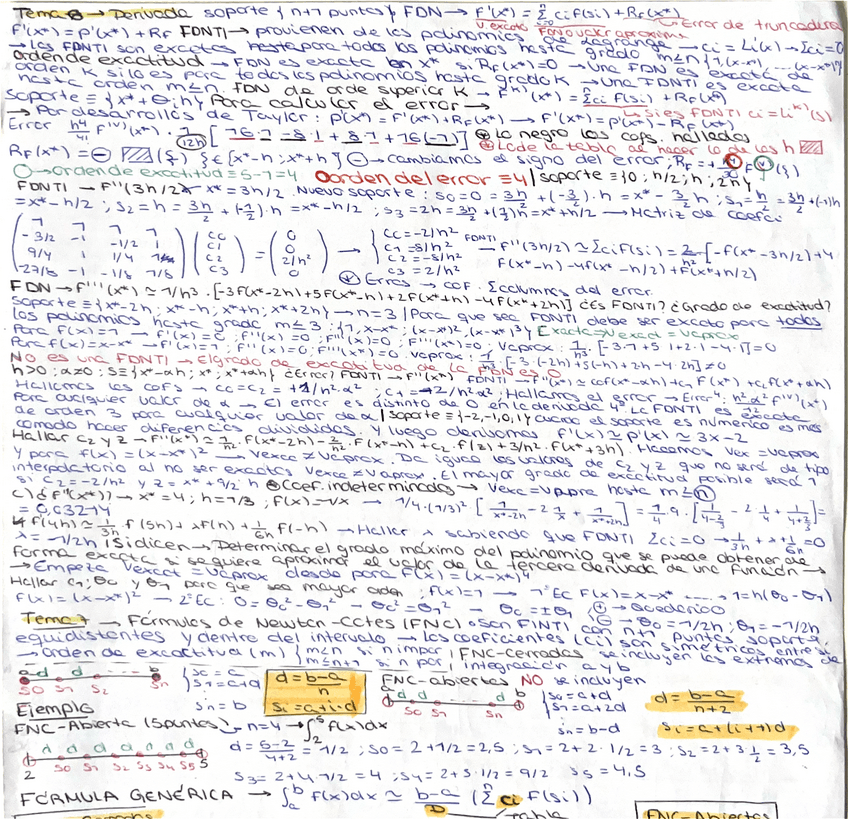 Tema 6 → Derivada soporte {n+1 puntos} FDN → F'(x*) = Σ ci F(si) + RF(x*)
V.exacto V.aproximado Error de truncadura
F'(x*) = p'(x*) + RF FONTI → provienen de los polinomios de Lagrange → ci = Li'(x) → Σci = 0
→ Las FDNTI son exactas para todos los polinomios hasta grado m≤n {1, (x-x*), ... (x-x*)^n}
Orden de exactitud → FDN es exacta en x* si RF(x*) = 0 → Una FDN es exacta de
orden K si lo es para todos los polinomios hasta grado K → Una FDNTI es exacta
hasta orden m≤n. FDN de orden superior K → F^(k)(x*) = Σ ci F(si) + RF(x*)
Soporte = {x* + θi h} Para calcular el error → Si es FDNTI ci = Li^(k)(s)
→ Por desarrollos de Taylor: p'(x*) = F'(x*) + RF(x*) → F'(x*) = p'(x*) - RF(x*)
Error h⁴/4! F^(IV)(x*) · 1/12h [16·1 - 8·1 + 8·1 + 16(-1)] ⊕ Lo negro los cofs. hallados
⊕ Lo de la tabla al hacer lo de los h
RF(x*) = ⊖ (ξ) ξ ∈ [x*-h; x*+h] ⊖ → cambiamos el signo del error; RF = + /30 F^(V)(ξ)
○ → orden de exactitud = 5-1 = 4 Orden del error = 4 / soporte = {0; h/2; h; 2h}
FDNTI → F''(3h/2) x* = 3h/2. Nuevo soporte: s0 = 0 = 3h/2 + (-3/2)·h = x* - 3/2 h; s1 = h/2 = 3h/2 + (-1)h
= x* - h/2; s2 = h = 3h/2 + (-1/2)·h = x* - h/2; s3 = 2h = 3h/2 + (1/2)h = x* + h/2 → Matriz de coefci
( 1 1 1 1 ) (c0) (0) { c0 = -2/h² FDNTI
( -3/2 -1 -1/2 1 ) (c1) = (0) → { c1 = 8/h² → F''(3h/2) ≃ Σci F(si) = 2/h² [-F(x*-3h/2) + 4
( 9/4 1 1/4 ) (c2) (2/h²) { c2 = -8/h² F(x*-h) - 4F(x*-h/2) + F(x*+h/2)]
( -27/8 -1 -1/8 1/8 ) (c3) (0) { c3 = 2/h² ⊕ Error → cof. Σcolumnas del error
FDN → F'''(x*) ≃ 1/h³ · [-3F(x*-2h) + 5F(x*-h) + 2F(x*+h) - 4F(x*+2h)] ¿Es FDNTI? ¿Grado de exactitud?
Soporte = {x*-2h; x*-h; x*+h; x*+2h} → n=3 / Para que sea FDNTI debe ser exacta para todos
los polinomios hasta grado m≤3: {1, x-x*, (x-x*)², (x-x*)³} Exacta → Vexac = Vaprox
Para F(x) = 1 → F'(x) = 0; F''(x) = 0; F'''(x) = 0; F'''(x*) = 0; Vaprox: 1/h³ · [-3·1 + 5·1 + 2·1 - 4·1] = 0
Para F(x) = x-x* → F'(x) = 1; F''(x) = 0; F'''(x) = 0; F'''(x*) = 0; Vaprox: 1/h³ · [-3·(-2h) + 5(-h) + 2h - 4·2h] ≠ 0
NO es una FDNTI → El grado de exactitud de la FDN es 0
h>0; α≠0; S = {x*-αh; x*; x*+αh} ¿Error? FDNTI → F''(x*) FDNTI → F''(x*) ≃ c0 F(x*-αh) + c1 F(x*) + c2 F(x*+αh)
Hallamos los cofs → c0 = c2 = +1/h²·α²; c1 = -2/h²α²; Hallamos el error → Error⁴: h²α²/ F^(IV)(x*)
Para cualquier valor de α → El error es distinto de 0 en la derivada 4ª. La FDNTI es exacta
de orden 3 para cualquier valor de α / soporte = {-2,-1,0,1} cuando el soporte es numérico es más
cómodo hacer diferencias divididas y luego derivamos F'(x) ≃ p'(x) ≃ 3x-2
Hallar c2 y z → F''(x*) ≃ 1/h² · F(x*-2h) - 2/h² · F(x*-h) + c2·F(z) + 3/h² · F(x*+3h). Hacemos Vex = Vaprox
y para F(x) = (x-x*)² → Vexac ≠ Vaprox. Da igual los valores de c2 y z que no será de tipo
interpolatorio al no ser exactas Vexac ≠ Vaprox. El mayor grado de exactitud posible será 1
si c2 = -2/h² y z = x* + 9/2 h ⊕ Coef. indeterminados → Vexac = Vaprox hasta m≤n
c) ¿F''(x*)? → x* = 4; h = 1/3; F(x) = √x → 1/4·(1/3)² [1/x*-2h - 2 1/x + 1/x*+2h] = 1/4 · 9 · [1/4-2/3 - 2 1/4 + 1/4+2/3] =
= 0,03214
F'(4h) ≃ 1/3h F(5h) + λF(h) + 1/6h F(-h) → Hallar λ sabiendo que FDNTI Σci = 0 → 1/3h + λ + 1/6h = 0
λ = -1/2h / Si dicen → Determinar el grado máximo del polinomio que se puede obtener de
forma exacta si se quiere aproximar el valor de la tercera derivada de una función →
→ Empieza Vexact = Vaprox desde para F(x) = (x-x*)⁴
Hallar c1; θ0 y θ1 para que sea mayor orden F(x) = 1 → 1ª Ec F(x) = x-x* ...... → 1 = h(θ0-θ1)
F(x) = (x-x*)² → 2ª Ec: 0 = θ0² - θ1² → θ0² = θ1² θ0 = ±θ1 ⊕ →
⊖ → θ0 = 1/2h; θ1 = -1/2h
Tema 7 → Fórmulas de Newton-Cotes (FNC) → Son FINTI con n+1 puntos soporte,
equidistantes y dentro del intervalo → los coeficientes (ci) son simétricos entre sí
→ Orden de exactitud (m) { m≤n si n impar / m≤n+1 si n par } FNC-cerradas se incluyen los extremos de
integración a y b
a d d b
s0 s1 s2 sn
{ s0 = a
{ s1 = a+d
sn = b
d = b-a / n
si = a+i·d
FNC-abiertas NO se incluyen
a d d d b
s0 s1 sn
{ s0 = a+d
{ s1 = a+2d
sn = b-d
d = b-a / n+2
si = a+(i+1)d
Ejemplo
FNC-Abierta (5 puntos) n = 4 → ∫₂⁵ f(x)dx
d d d d d d
2 s0 s1 s2 s3 s4 s5 5
d = 5-2 / 4+2 = 1/2; s0 = 2+1/2 = 2,5; s1 = 2+2·1/2 = 3; s2 = 2+3·1/2 = 3,5
s3 = 2+4·1/2 = 4; s4 = 2+5·1/2 = 9/2 s5 = 4,5
FÓRMULA GENÉRICA → ∫ₐᵇ f(x)dx ≃ b-a / D (Σ ci F(si))
Tabla
FNC-Abiertas